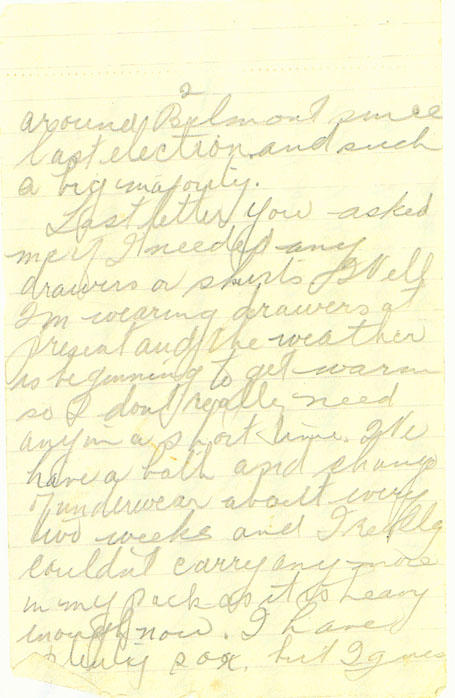 2
around Belmont since
last election and such
a big majority.
Last letter you asked
me if I needed any
drawers or shirts. Well
I'm wearing drawers at
present and the weather
is beginning to get warm
so I don't really need
any in a short time. We
have a bath and change
of underwear about every
two weeks and I really
couldn't carry any more
in my pack as it is heavy
enough now. I have
plenty sox, but I guess